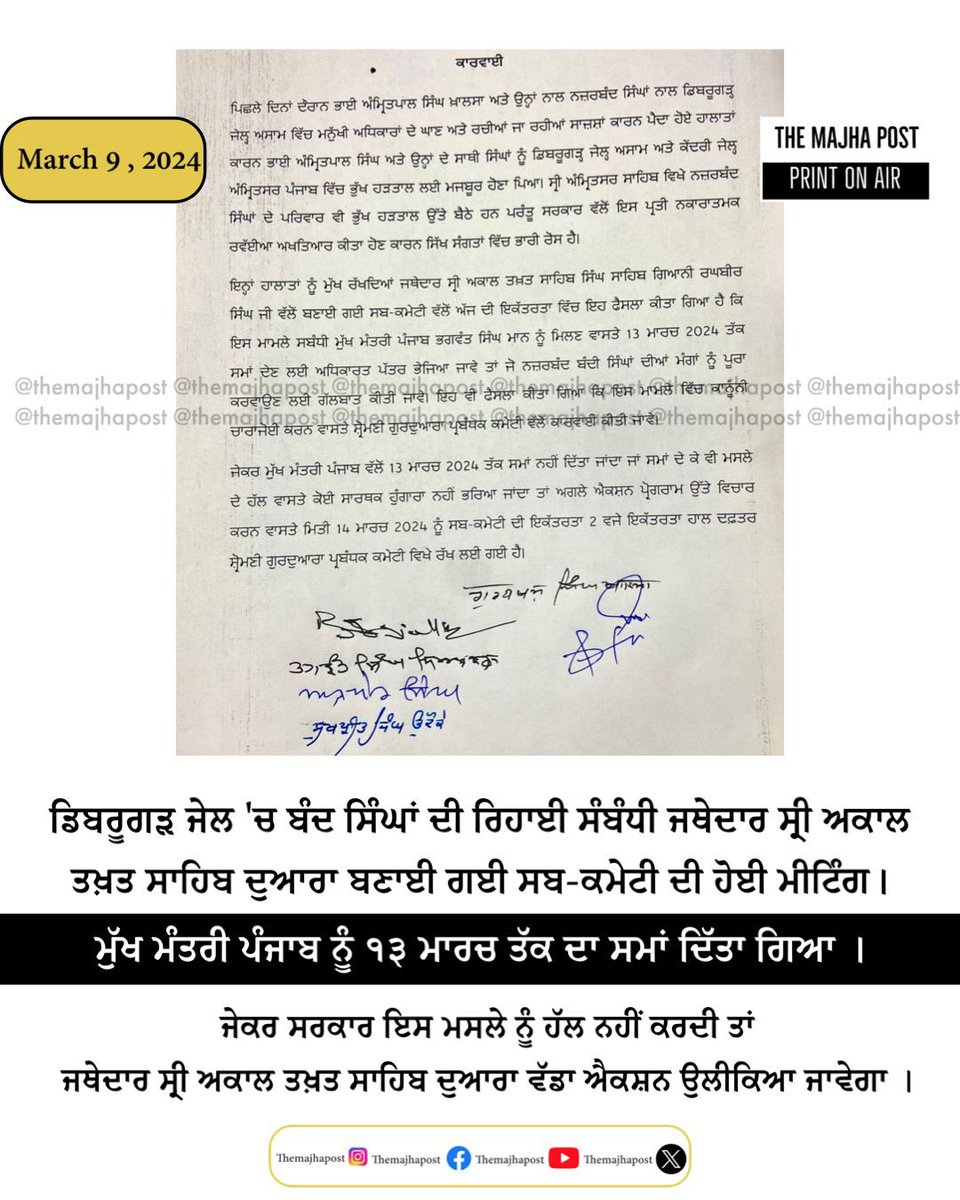 ਕਾਰਵਾਈ
ਪਿਛਲੇ ਦਿਨਾਂ ਦੌਰਾਨ ਭਾਈ ਅੰਮ੍ਰਿਤਪਾਲ ਸਿੰਘ ਖ਼ਾਲਸਾ ਅਤੇ ਉਨ੍ਹਾਂ ਨਾਲ ਨਜ਼ਰਬੰਦ ਸਿੰਘਾਂ ਨਾਲ ਡਿਬਰੂਗੜ੍ਹ
ਜੇਲ੍ਹ ਅਸਾਮ ਵਿੱਚ ਮਨੁੱਖੀ ਅਧਿਕਾਰਾਂ ਦੇ ਘਾਣ ਅਤੇ ਰਚੀਆਂ ਜਾ ਰਹੀਆਂ ਸਾਜ਼ਸ਼ਾਂ ਕਾਰਨ ਪੈਦਾ ਹੋਏ ਹਾਲਾਤਾਂ
March 9 , 2024
THE MAJHA POST
PRINT ON AIR
ਕਾਰਨ ਭਾਈ ਅੰਮ੍ਰਿਤਪਾਲ ਸਿੰਘ ਅਤੇ ਉਨ੍ਹਾਂ ਦੇ ਸਾਥੀ ਸਿੰਘਾਂ ਨੂੰ ਡਿਬਰੂਗੜ੍ਹ ਜੇਲ੍ਹ ਅਸਾਮ ਅਤੇ ਕੇਂਦਰੀ ਜੇਲ੍ਹ
ਅੰਮ੍ਰਿਤਸਰ ਪੰਜਾਬ ਵਿੱਚ ਭੁੱਖ ਹੜਤਾਲ ਲਈ ਮਜਬੂਰ ਹੋਣਾ ਪਿਆ। ਸ੍ਰੀ ਅੰਮ੍ਰਿਤਸਰ ਸਾਹਿਬ ਵਿਖੇ ਨਜ਼ਰਬੰਦ
ਸਿੰਘਾਂ ਦੇ ਪਰਿਵਾਰ ਵੀ ਭੁੱਖ ਹੜਤਾਲ ਉੱਤੇ ਬੈਠੇ ਹਨ ਪਰੰਤੂ ਸਰਕਾਰ ਵੱਲੋਂ ਇਸ ਪ੍ਰਤੀ ਨਕਾਰਾਤਮਕ
ਰਵੱਈਆ ਅਖਤਿਆਰ ਕੀਤਾ ਹੋਣ ਕਾਰਨ ਸਿੱਖ ਸੰਗਤਾਂ ਵਿੱਚ ਭਾਰੀ ਰੋਸ ਹੈ।
ਇਨ੍ਹਾਂ ਹਾਲਾਤਾਂ ਨੂੰ ਮੁੱਖ ਰੱਖਦਿਆਂ ਜਥੇਦਾਰ ਸ੍ਰੀ ਅਕਾਲ ਤਖ਼ਤ ਸਾਹਿਬ ਸਿੰਘ ਸਾਹਿਬ ਗਿਆਨੀ ਰਘਬੀਰ
ਸਿੰਘ ਜੀ ਵੱਲੋਂ ਬਣਾਈ ਗਈ ਸਬ-ਕਮੇਟੀ ਵੱਲੋਂ ਅੱਜ ਦੀ ਇਕੱਤਰਤਾ ਵਿੱਚ ਇਹ ਫੈਸਲਾ ਕੀਤਾ ਗਿਆ ਹੈ ਕਿ
ਇਸ ਮਾਮਲੇ ਸਬੰਧੀ ਮੁੱਖ ਮੰਤਰੀ ਪੰਜਾਬ ਭਗਵੰਤ ਸਿੰਘ ਮਾਨ ਨੂੰ ਮਿਲਣ ਵਾਸਤੇ 13 ਮਾਰਚ 2024 ਤੱਕ
ਸਮਾਂ ਦੇਣ ਲਈ ਅਧਿਕਾਰਤ ਪੱਤਰ ਭੇਜਿਆ ਜਾਵੇ ਤਾਂ ਜੋ ਨਜ਼ਰਬੰਦ ਬੰਦੀ ਸਿੰਘਾਂ ਦੀਆਂ ਮੰਗਾਂ ਨੂੰ ਪੂਰਾ
@themajhapost @themajhapost @themajhapost @themajhapost @themajhapost @themajhapost
ਕਰਵਾਉਣ ਲਈ ਗੱਲਬਾਤ ਕੀਤੀ ਜਾਵੇ। ਇਹ ਵੀ ਫੈਸਲਾ ਕੀਤਾ ਗਿਆ ਕਿ ਇਸ ਮਾਮਲੇ ਵਿੱਚ ਕਾਨੂੰਨੀ
@themajhapost @themajhapost @themajhapost @themajhapost @themajhapost @themajhapost
ਚਾਰਾਜੋਈ ਕਰਨ ਵਾਸਤੇ ਸ਼੍ਰੋਮਣੀ ਗੁਰਦੁਆਰਾ ਪ੍ਰਬੰਧਕ ਕਮੇਟੀ ਵੱਲੋਂ ਕਾਰਵਾਈ ਕੀਤੀ ਜਾਵੇ।
ਜੇਕਰ ਮੁੱਖ ਮੰਤਰੀ ਪੰਜਾਬ ਵੱਲੋਂ 13 ਮਾਰਚ 2024 ਤੱਕ ਸਮਾਂ ਨਹੀਂ ਦਿੱਤਾ ਜਾਂਦਾ ਜਾਂ ਸਮਾਂ ਦੇ ਕੇ ਵੀ ਮਸਲੇ
ਦੇ ਹੱਲ ਵਾਸਤੇ ਕੋਈ ਸਾਰਥਕ ਹੁੰਗਾਰਾ ਨਹੀਂ ਭਰਿਆ ਜਾਂਦਾ ਤਾਂ ਅਗਲੇ ਐਕਸ਼ਨ ਪ੍ਰੋਗਰਾਮ ਉੱਤੇ ਵਿਚਾਰ
ਕਰਨ ਵਾਸਤੇ ਮਿਤੀ 14 ਮਾਰਚ 2024 ਨੂੰ ਸਬ-ਕਮੇਟੀ ਦੀ ਇਕੱਤਰਤਾ 2 ਵਜੇ ਇਕੱਤਰਤਾ ਹਾਲ ਦਫ਼ਤਰ
ਸ਼੍ਰੋਮਣੀ ਗੁਰਦੁਆਰਾ ਪ੍ਰਬੰਧਕ ਕਮੇਟੀ ਵਿਖੇ ਰੱਖ ਲਈ ਗਈ ਹੈ।
ਸਿੰਘ
ਸਿੰਘ
ਸਿੰਘ
ਡਿਬਰੂਗੜ ਜੇਲ 'ਚ ਬੰਦ ਸਿੰਘਾਂ ਦੀ ਰਿਹਾਈ ਸੰਬੰਧੀ ਜਥੇਦਾਰ ਸ੍ਰੀ ਅਕਾਲ
ਤਖ਼ਤ ਸਾਹਿਬ ਦੁਆਰਾ ਬਣਾਈ ਗਈ ਸਬ-ਕਮੇਟੀ ਦੀ ਹੋਈ ਮੀਟਿੰਗ।
ਮੁੱਖ ਮੰਤਰੀ ਪੰਜਾਬ ਨੂੰ ੧੩ ਮਾਰਚ ਤੱਕ ਦਾ ਸਮਾਂ ਦਿੱਤਾ ਗਿਆ ।
ਜੇਕਰ ਸਰਕਾਰ ਇਸ ਮਸਲੇ ਨੂੰ ਹੱਲ ਨਹੀਂ ਕਰਦੀ ਤਾਂ
ਜਥੇਦਾਰ ਸ੍ਰੀ ਅਕਾਲ ਤਖ਼ਤ ਸਾਹਿਬ ਦੁਆਰਾ ਵੱਡਾ ਐਕਸ਼ਨ ਉਲੀਕਿਆ ਜਾਵੇਗਾ ।
Themajhapost Themajhapost Themajhapost Themajhapost